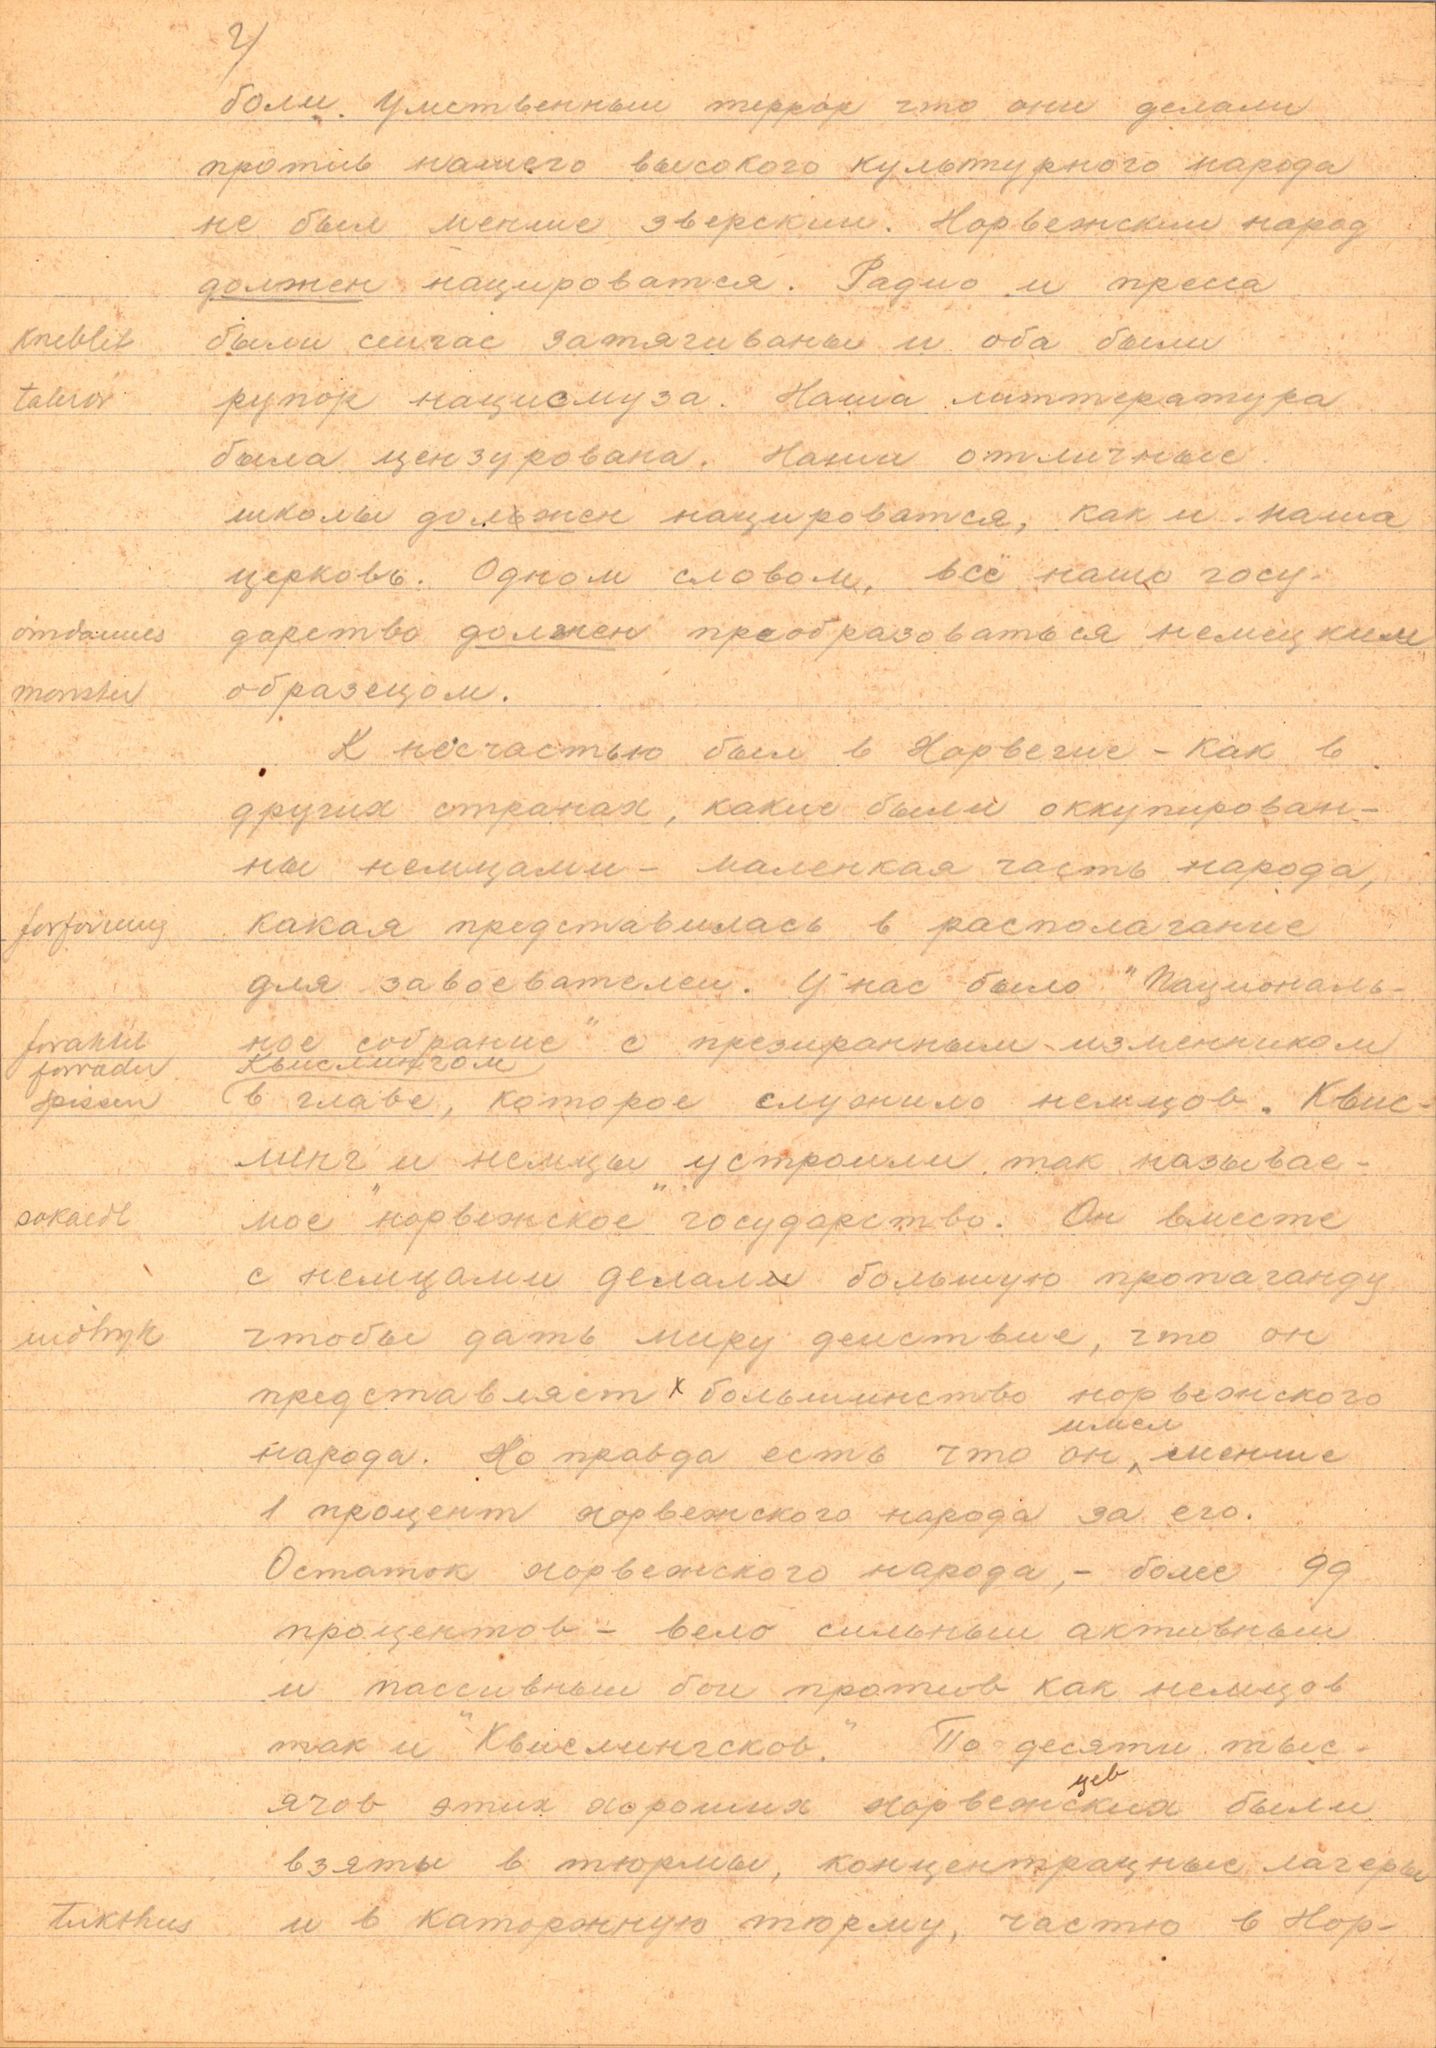 2/
боли. Умственныи террор что они делали
против нашего высокого культурного народа
не был менше зверским. Норвежскии народ
должен нацироватся. Радио и пресса
kneblet были сеичас затягиваны и оба были
talerør рупор нацисмуза. Наша литтература
была цензурована. Наши отличные
школы должен нацироватся, как и наша
церковь. Одном словом, всё нашо госу-
omdannes дарство должен преобразоваться немецким
mønster образецом.
К несчастью был в Норвегие - как в
других странах, какие были оккупирован-
ны немцами - маленкая часть народа,
forføining какая представилась в располагание
для завоевателеи. У нас было "Националь-
foraktet ное собрание" с презиранным изменником
forræder Квислингом
spissen в главе, которое служило немцов. Квис-
линг и немцы устроили так называе-
såkaldt мое "норвежское" государство. Он вместе
с немцами делали большую пропаганду
indtryk чтобы дать миру деиствие, что он
представляет x большинство норвежского
имел
народа. Но правда есть что он, менше
1 процент норвежского народа за его.
Остаток норвежского народа, - более 99
процентов - вело сильныи активныи
и пассивныи бои против как немцов
так и "Квислингсков." По десяти тыс-
цев
ячов этих хороших норвежских были
взяты в тюрмы, концентрацные лагеры
tukthus и в каторжную тюрму, частю в Нор-